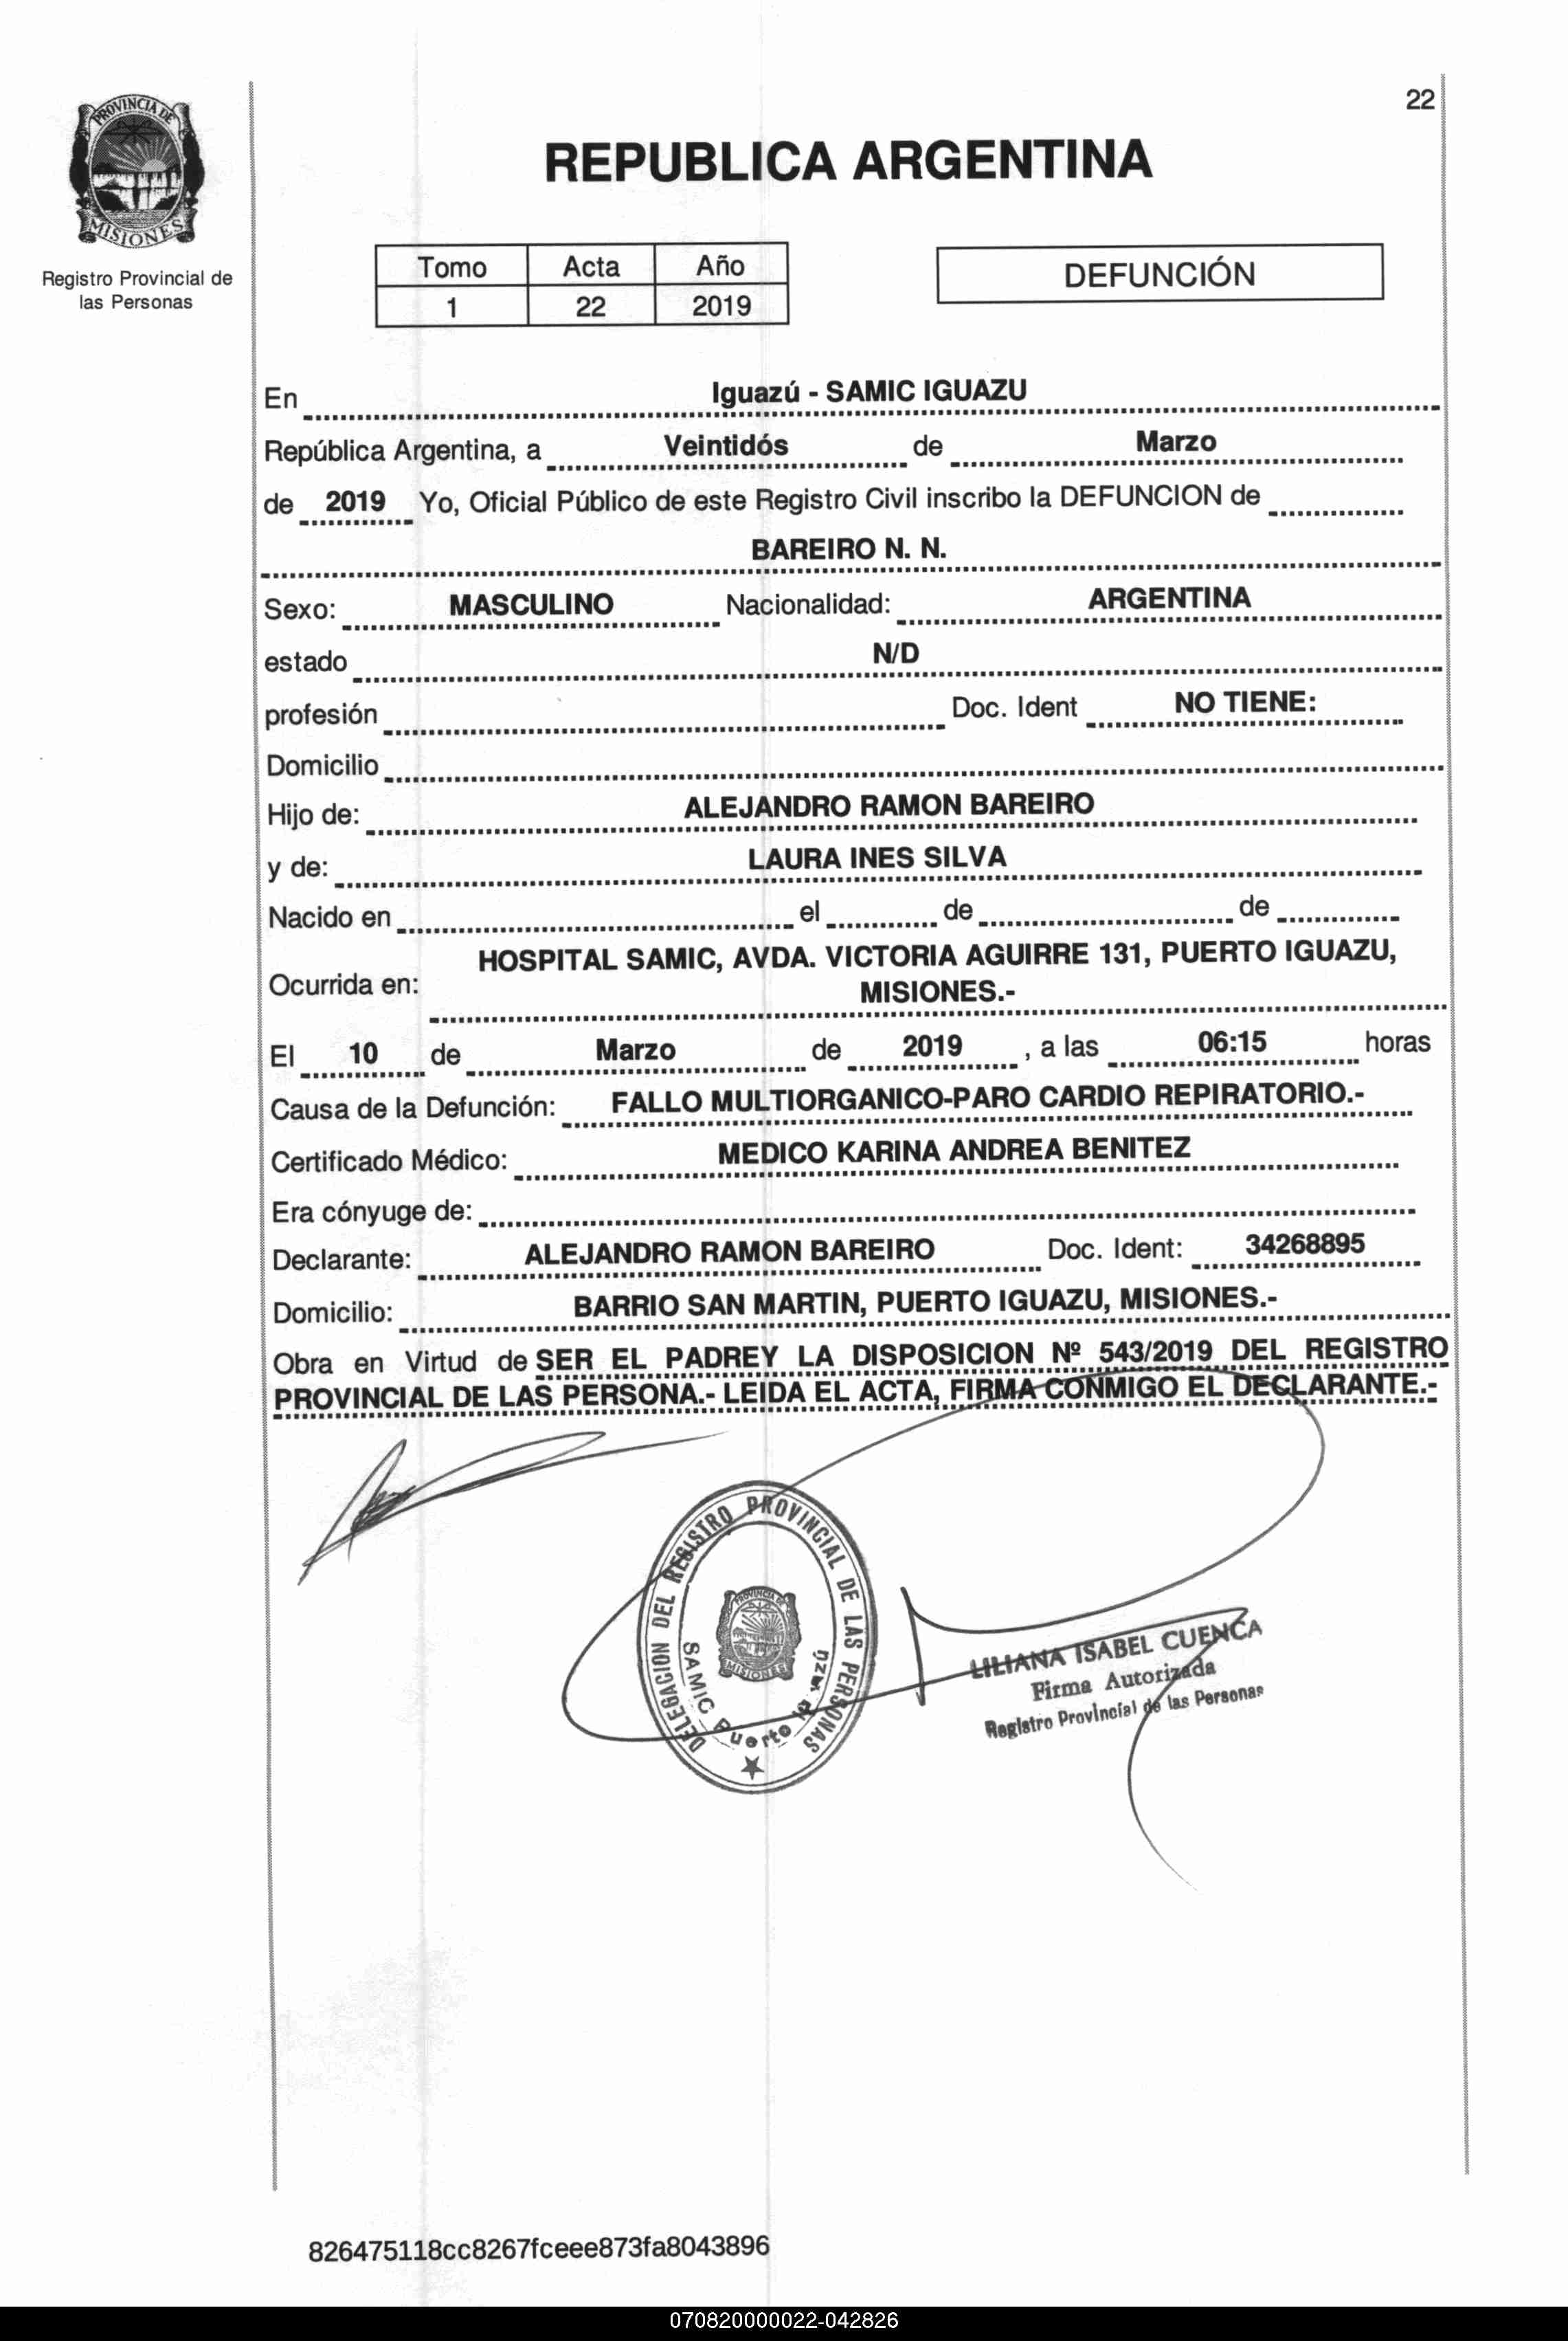 22
PROVINCIA DE
MISIONES
Registro Provincial de
las Personas
REPUBLICA ARGENTINA
Tomo Acta Año
1 22 2019
DEFUNCIÓN
En Iguazú - SAMIC IGUAZU
República Argentina, a Veintidós de Marzo
de 2019 Yo, Oficial Público de este Registro Civil inscribo la DEFUNCION de
BAREIRO N. N.
Sexo: MASCULINO Nacionalidad: ARGENTINA
estado N/D
profesión Doc. Ident NO TIENE:
Domicilio
Hijo de: ALEJANDRO RAMON BAREIRO
y de: LAURA INES SILVA
Nacido en el de de
HOSPITAL SAMIC, AVDA. VICTORIA AGUIRRE 131, PUERTO IGUAZU,
Ocurrida en: MISIONES.-
El 10 de Marzo de 2019 , a las 06:15 horas
Causa de la Defunción: FALLO MULTIORGANICO-PARO CARDIO REPIRATORIO.-
Certificado Médico: MEDICO KARINA ANDREA BENITEZ
Era cónyuge de:
Declarante: ALEJANDRO RAMON BAREIRO Doc. Ident: 34268895
Domicilio: BARRIO SAN MARTIN, PUERTO IGUAZU, MISIONES.-
Obra en Virtud de SER EL PADREY LA DISPOSICION Nº 543/2019 DEL REGISTRO
PROVINCIAL DE LAS PERSONA.- LEIDA EL ACTA, FIRMA CONMIGO EL DECLARANTE.-
DELEGACION DEL REGISTRO PROVINCIAL DE LAS PERSONAS
PROVINCIA DE
MISIONES
SAMIC Puerto Iguazú
LILIANA ISABEL CUENCA
Firma Autorizada
Registro Provincial de las Personas
826475118cc8267fceee873fa8043896
070820000022-042826